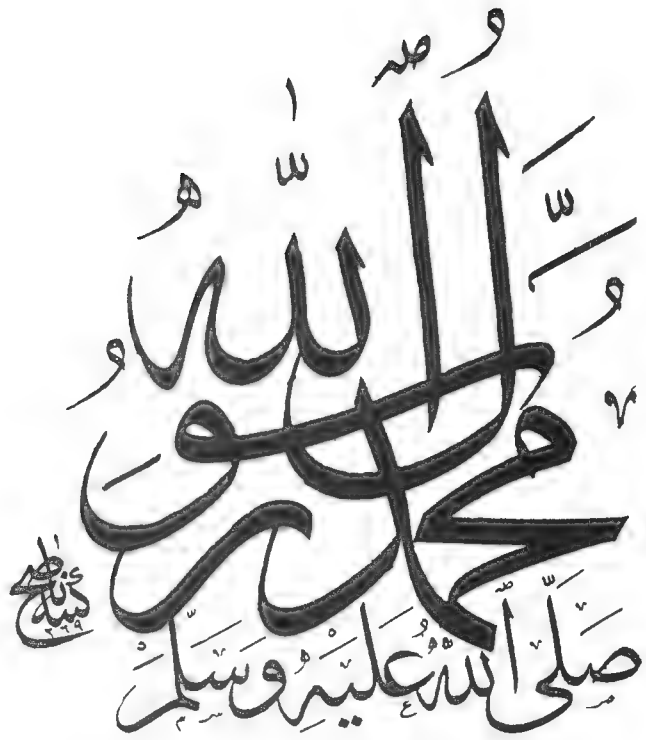 مُحَمَّدٌ رَسُولُ ٱللّٰهِ
صَلَّى ٱللَّهُ عَلَيْهِ وَسَلَّمَ